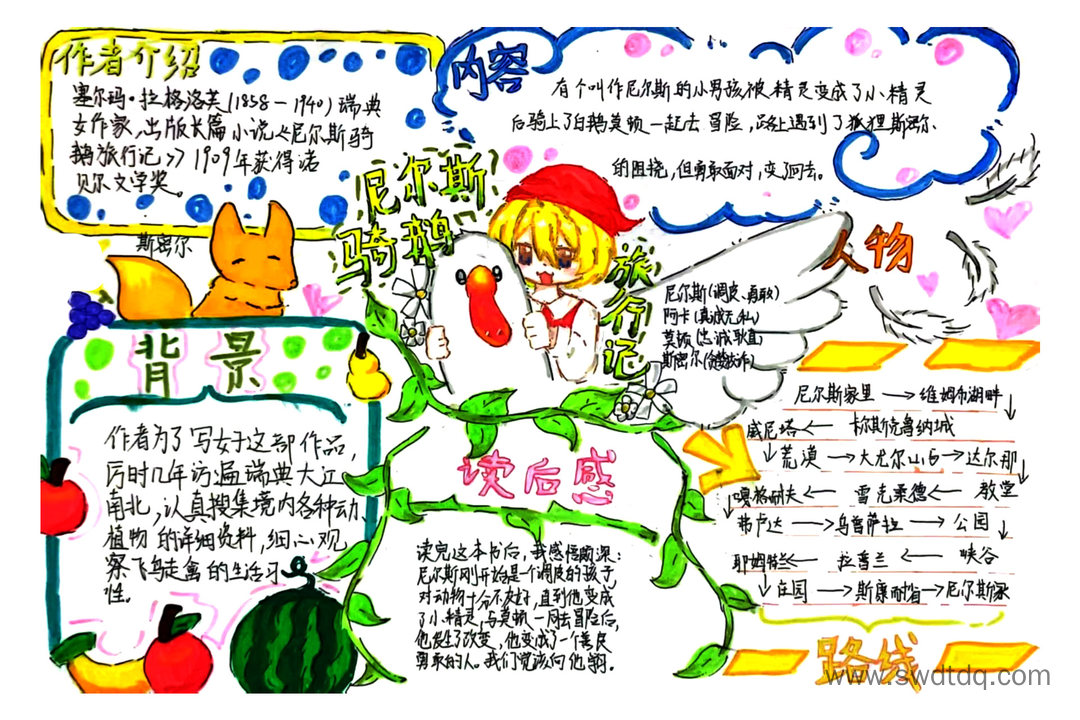 作者介绍
塞尔玛·拉格洛芙(1858-1940)瑞典
女作家,出版长篇小说《尼尔斯骑
鹅旅行记》 1909年获得诺
贝尔文学奖。
内容
有个叫作尼尔斯的小男孩被精灵变成了小精灵
后骑上了白鹅莫顿一起去冒险,路上遇到了狐狸斯密尔
的围挠,但勇敢面对,变了回去。
尼尔斯
骑鹅
旅行记
斯密尔
人物
尼尔斯(调皮、勇敢)
阿卡(真诚无私)
莫顿(忠诚耿直)
斯密尔
背景
作者为了写好这部作品,
历时几年访遍瑞典大江
南北,认真搜集境内各种动、
植物的详细资料,细心观
察飞鸟走禽的生活习
性。
读后感
读完这本书后,我感悟颇深:
尼尔斯刚开始是一个调皮的孩子,
对动物十分不友好,直到他变成
了小精灵,与莫顿一同去冒险后,
他发生了改变,他变成了一个善良
勇敢的人。我们应该向他学习。
尼尔斯家里→维姆布湖畔↓
威尼塔←卡尔斯克鲁纳城
↓荒漠→大尤尔山→达尔那↓
嘎格耐夫←雪克柔德←教堂
↓弗卢达→乌普萨拉→公园↓
耶姆特兰←拉普兰←峡谷
↓庄园→斯康耐省→尼尔斯家
路线
www.swdtdq.com